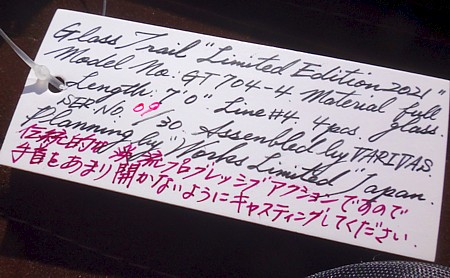 Glass Trail "Limited Edition 2021"
Model No. GT704-4. Material full
Length. 7'0" Line#4. 4pcs. glass.
SER No. 09/30 Assembled by VARIVAS.
Planning by "Works Limited" Japan.
伝統的な渓流プログレッシブアクションですので
手首をあまり開かないようにキャスティングしてください.